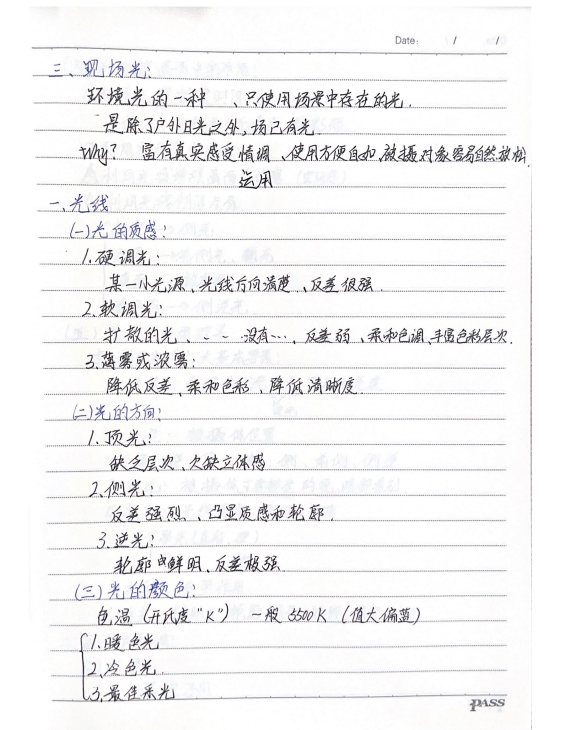 Date: / /
三、现场光:
环境光的一种、只使用场景中存在的光.
是除了户外日光之外,场已有光.
Why? 富有真实感受情调、使用方便自如,被摄对象容易自然放松.
运用
一、光线
(一)光的质感:
1.硬调光:
某一小光源、光线方向清楚、反差很强.
2.软调光:
扩散的光、- - 没有…、反差弱、柔和色调、丰富色彩层次.
3.薄雾或浓雾:
降低反差、柔和色彩、降低清晰度.
(二)光的方向:
1.顶光:
缺乏层次、欠缺立体感
2.侧光:
反差强烈、凸显质感和轮廓.
3.逆光:
轮廓鲜明、反差极强.
(三)光的颜色:
色温(开氏度"K") 一般5500K(值大偏蓝)
1.暖色光
2.冷色光
3.最佳采光
PASS